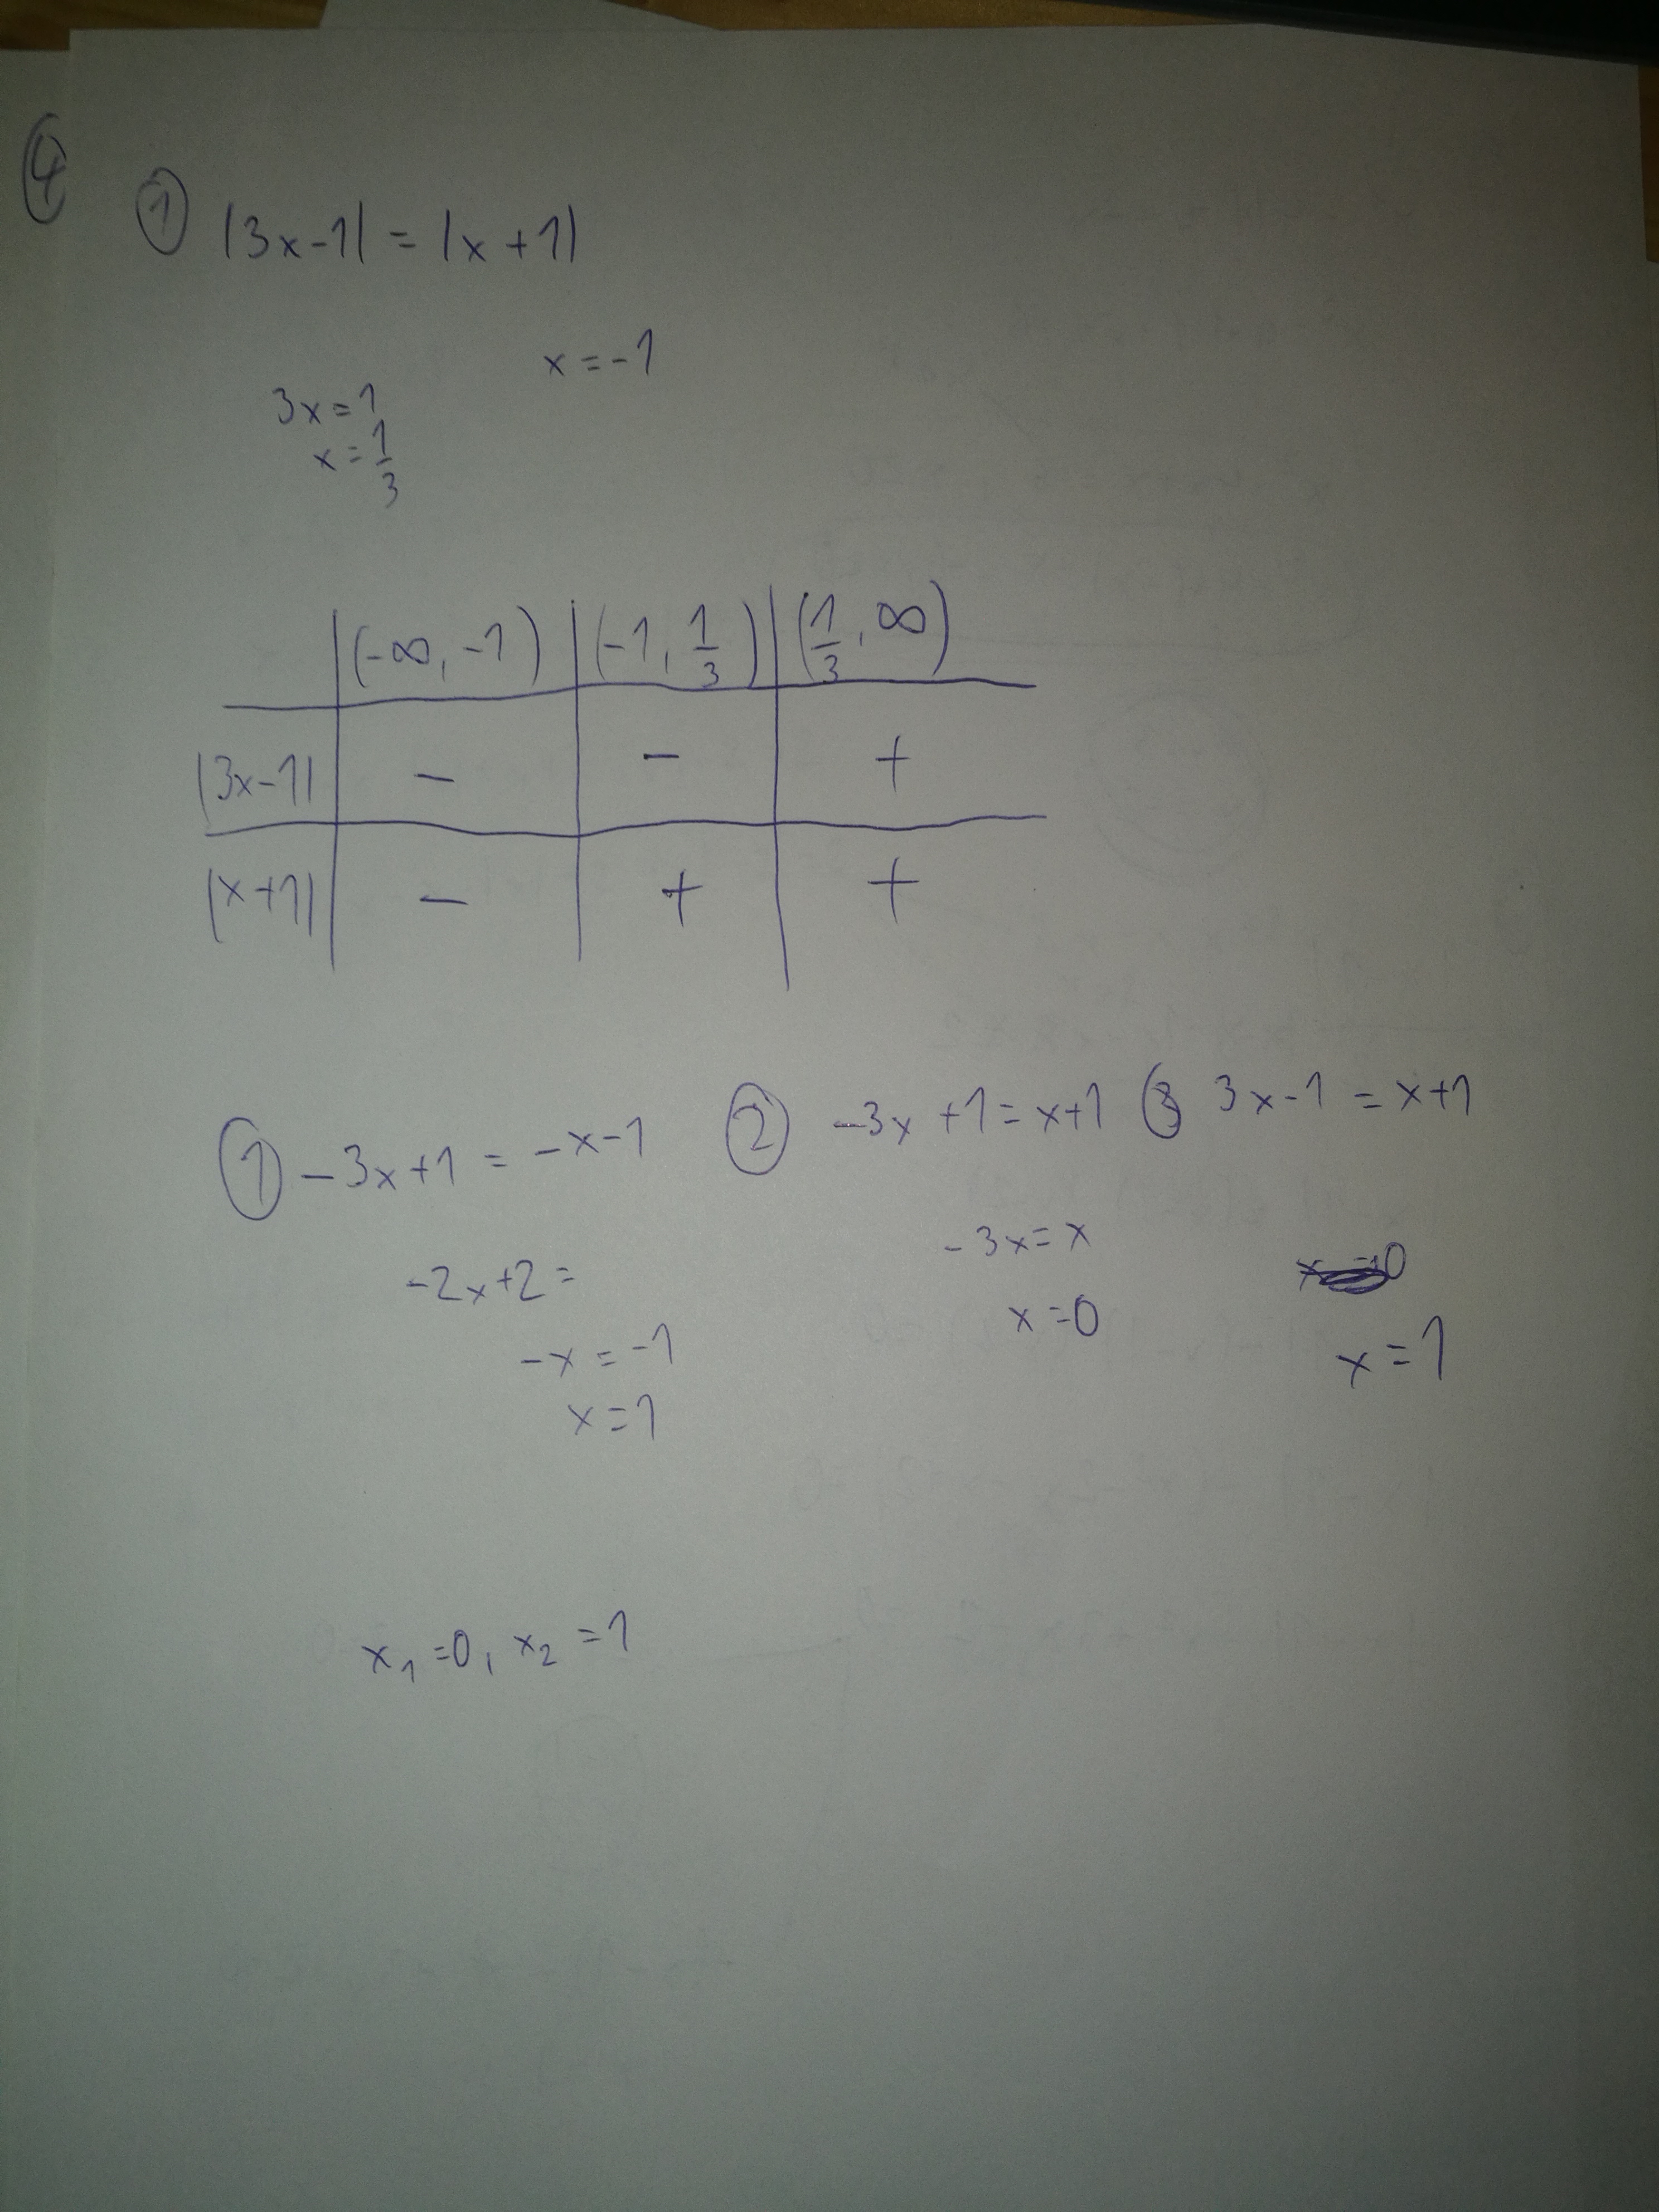 4
1 |3x-1| = |x+1|
x=-1
3x=1
x=1/3
(-∞,-1) (-1,1/3) (1/3,∞)
|3x-1| - - +
|x+1| - + +
1 -3x+1 = -x-1 2 -3x+1=x+1 3 3x-1=x+1
-2x+2= -3x=x
-x=-1 x=0 x=1
x=1
x₁=0, x₂=1